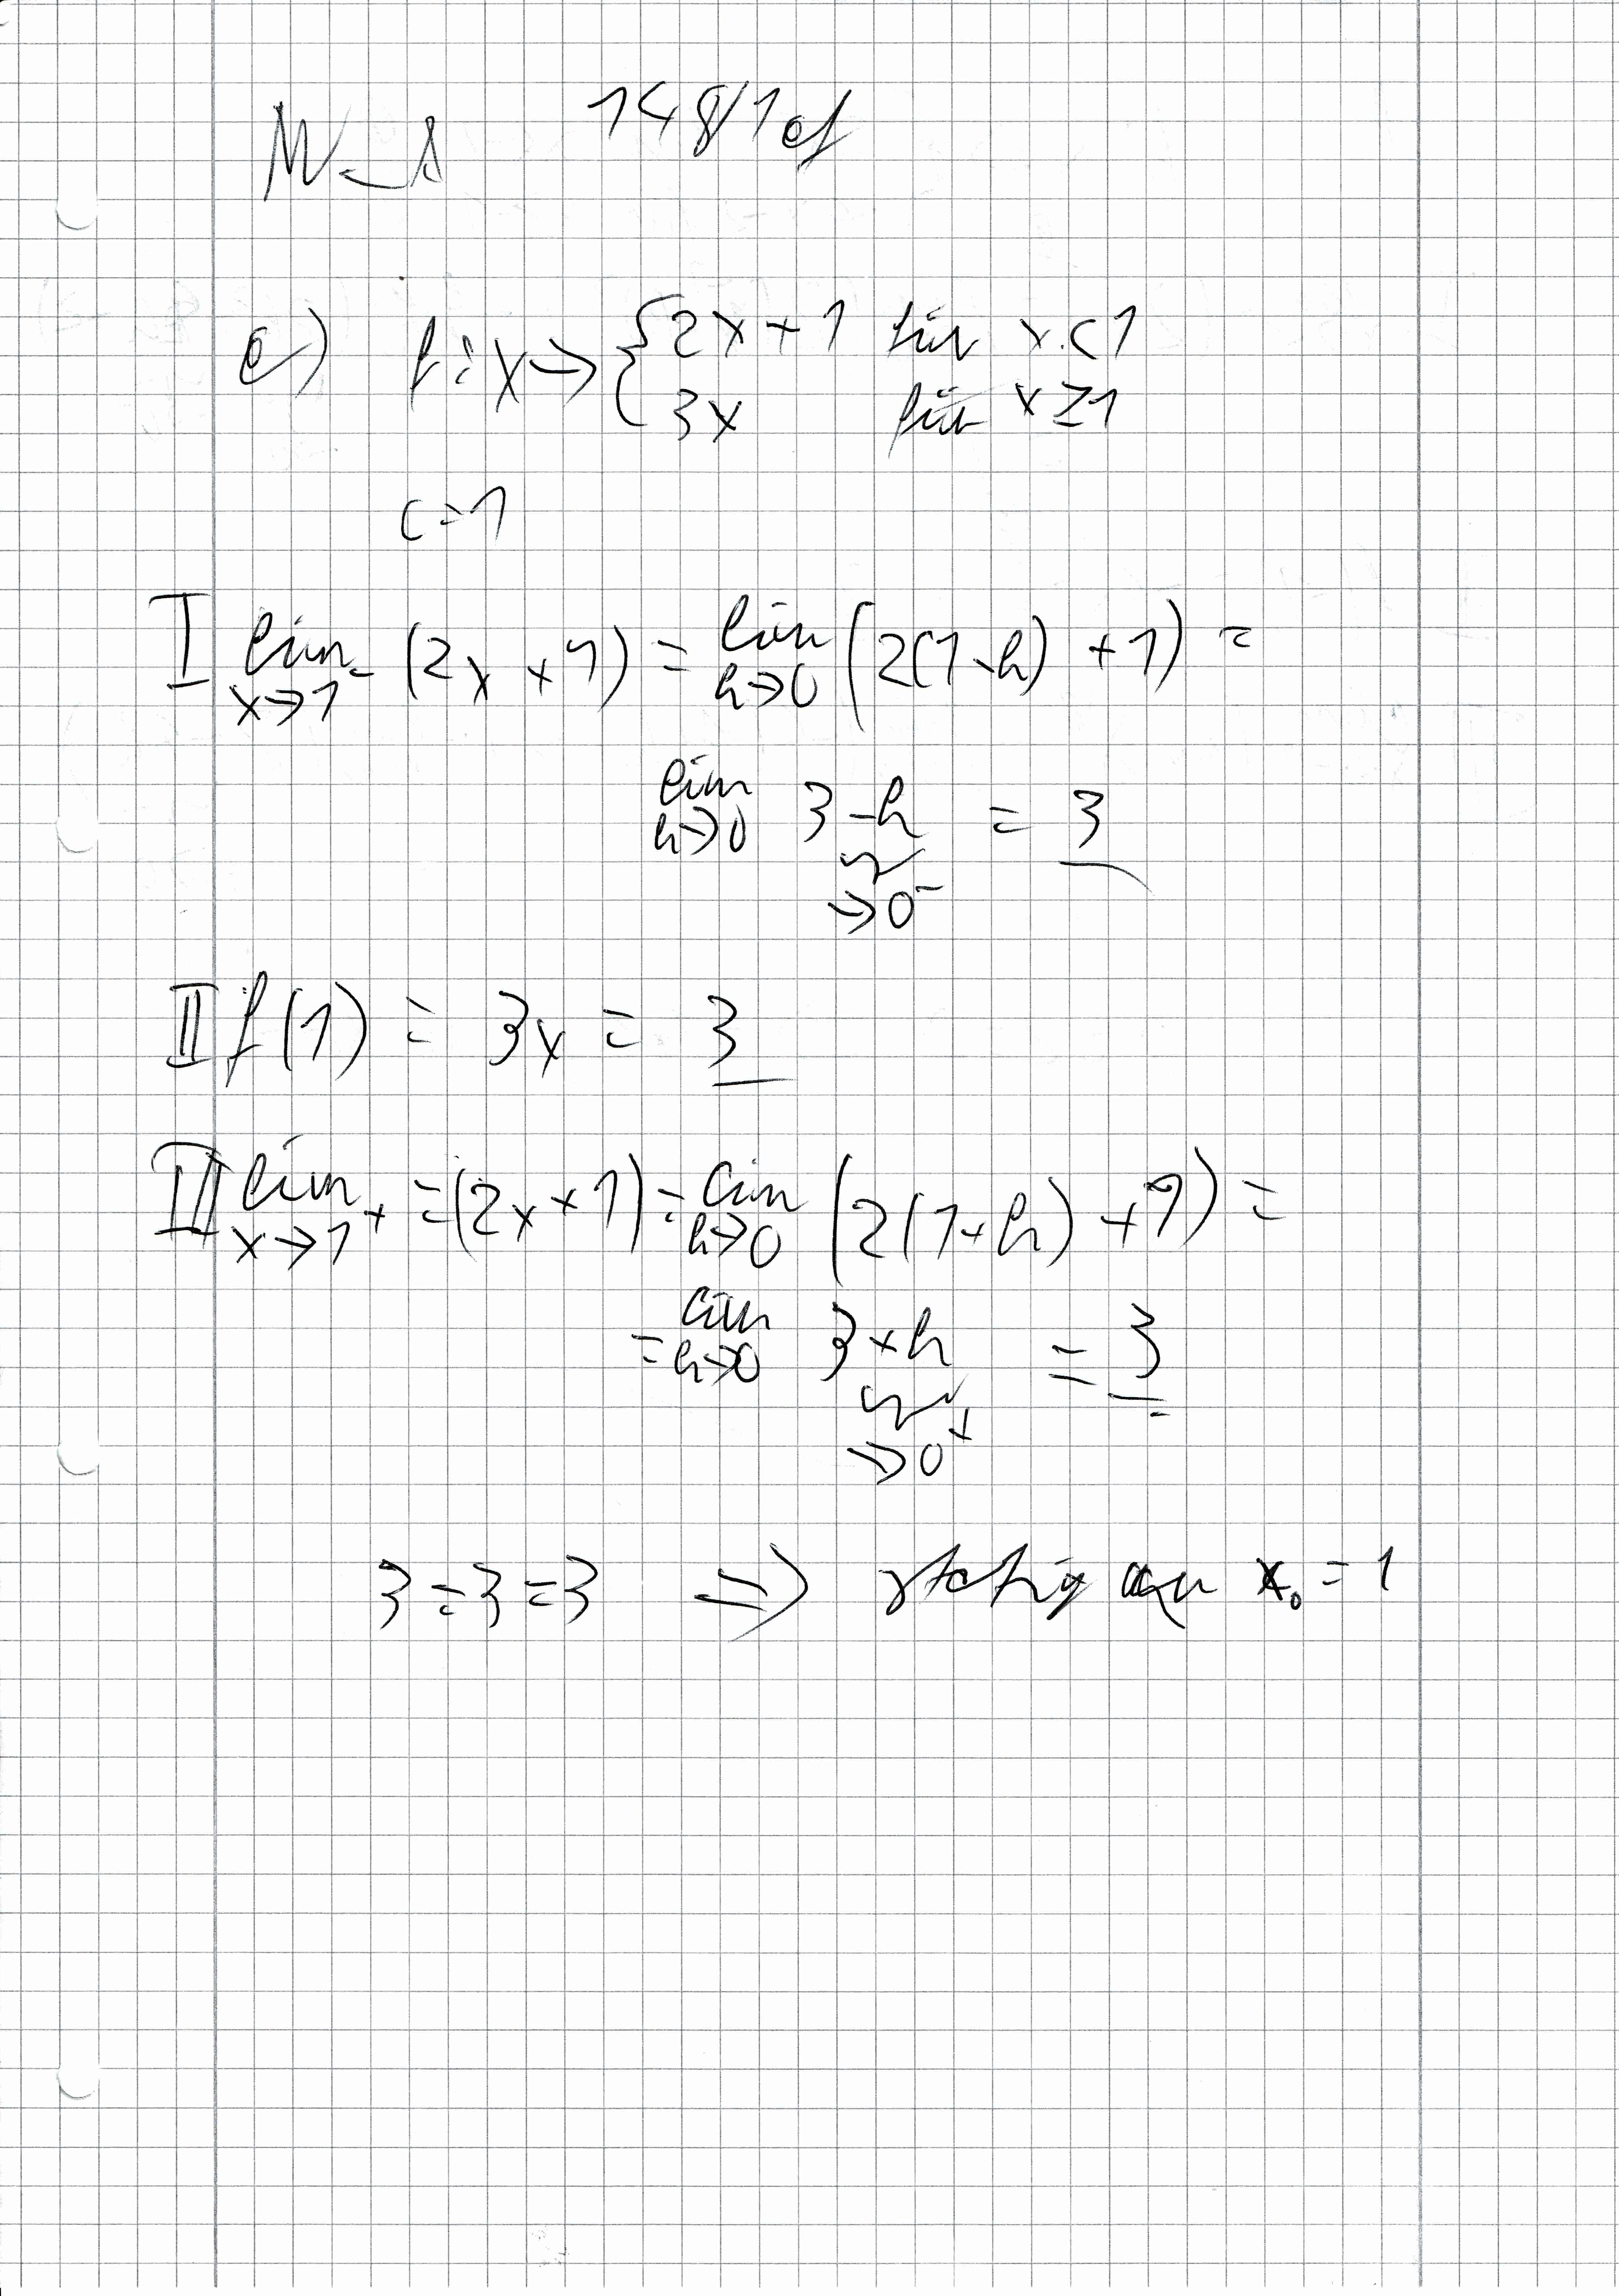 148/1 ef
e) f: x → { 2x + 1 für x < 1
3x für x ≥ 1
c = 1
I lim x→1⁻ (2x + 1) = lim h→0 (2(1-h) + 1) =
lim h→0 3 - h = 3
→0⁻
II f(1) = 3x = 3
III lim x→1⁺ = (2x + 1) = lim h→0 (2(1+h) + 1) =
= lim h→0 3 + h = 3
→0⁺
3 = 3 = 3 ⇒ stetig an x₀ = 1